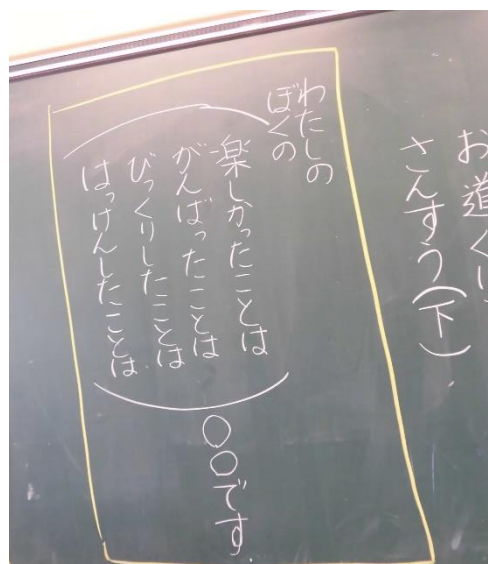 お道ぐ
さんすう(下)
わたしの
ぼくの
楽しかったことは
がんばったことは
びっくりしたことは
はっけんしたことは
○○です